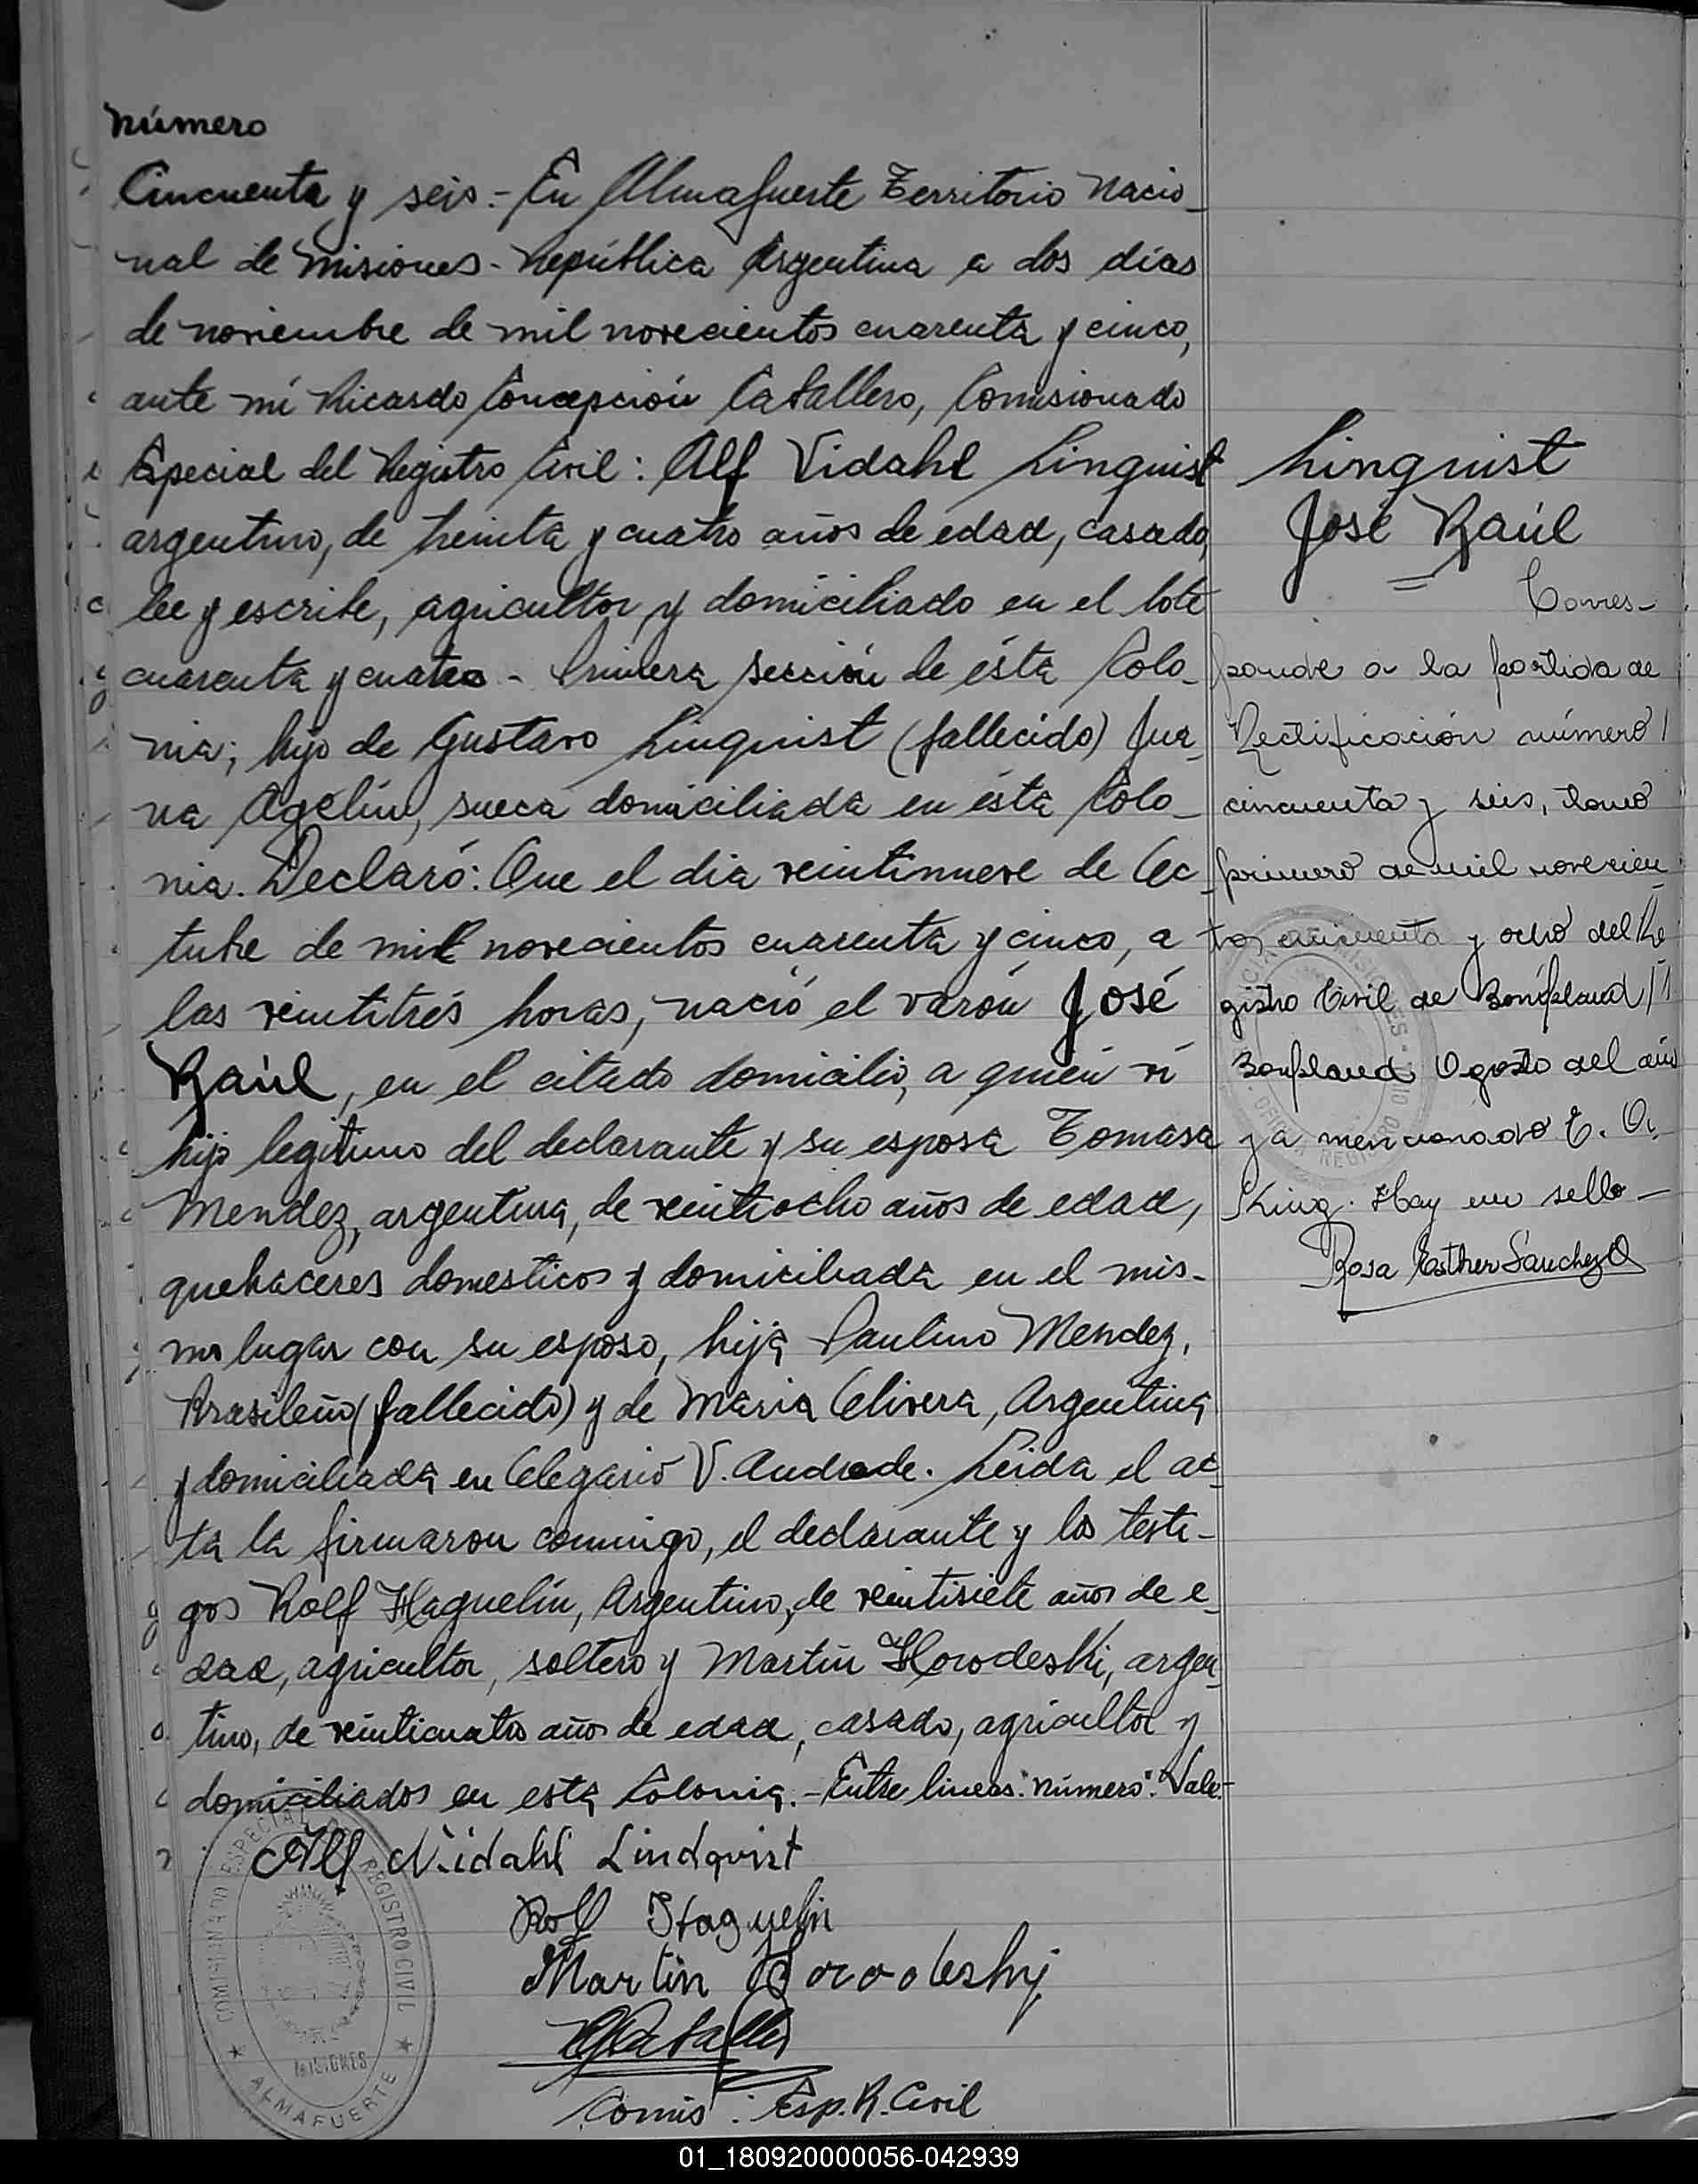 Número
Cincuenta y seis.- En Almafuerte Territorio Nacio-
nal de Misiones - República Argentina a dos días
de noviembre de mil novecientos cuarenta y cinco,
ante mí Ricardo Concepción Caballero, Comisionado
Especial del Registro Civil: Alf Vidahl Linquist
argentino, de treinta y cuatro años de edad, casado,
lee y escribe, agricultor y domiciliado en el lote
cuarenta y cuatro - Primera Sección de ésta Colo-
nia; hijo de Gustavo Linquist (fallecido) Jua-
na Agelín, sueca domiciliada en ésta Colo-
nia. Declaró: Que el dia veintinueve de Oc-
tubre de mil novecientos cuarenta y cinco, a
las veintitrés horas, nació el varón José
Raúl, en el citado domicilio, a quién ví
hijo legitimo del declarante y su esposa Tomasa
Mendez, argentina, de veintiocho años de edad,
quehaceres domesticos y domiciliada en el mis-
mo lugar con su esposo, hija Paulino Mendez,
Brasileño (fallecido) y de Maria Olivera, Argentina
y domiciliada en Olegario V. Andrade. Leida el ac-
ta la firmaron conmigo, el declarante y los testi-
gos Rolf Haguelín, Argentino, de veintisiete años de e-
dad, agricultor, soltero y Martín Horodeski, argen-
tino, de veinticuatro años de edad, casado, agricultor y
domiciliados en esta Colonia.- Entre lineas: "Número": Vale.-
Alf Vidahl Lindqvist
Rolf Haguelin
Martin Horodeshy
RCCaballero
Comis: Esp. R. Civil
COMISIONADO ESPECIAL DEL REGISTRO CIVIL
MISIONES
★ ALMAFUERTE ★
Linquist
José Raúl
Corres-
ponde a la partida de
Rectificación número
cincuenta y seis, tomo
primero de mil novecien-
tos cincuenta y ocho del Re-
gistro Civil de Bonpland
Bonpland Agosto del año
ya mencionado E. A.
King. Hay un sello -
Rosa Esther Sanchez
01_180920000056-042939